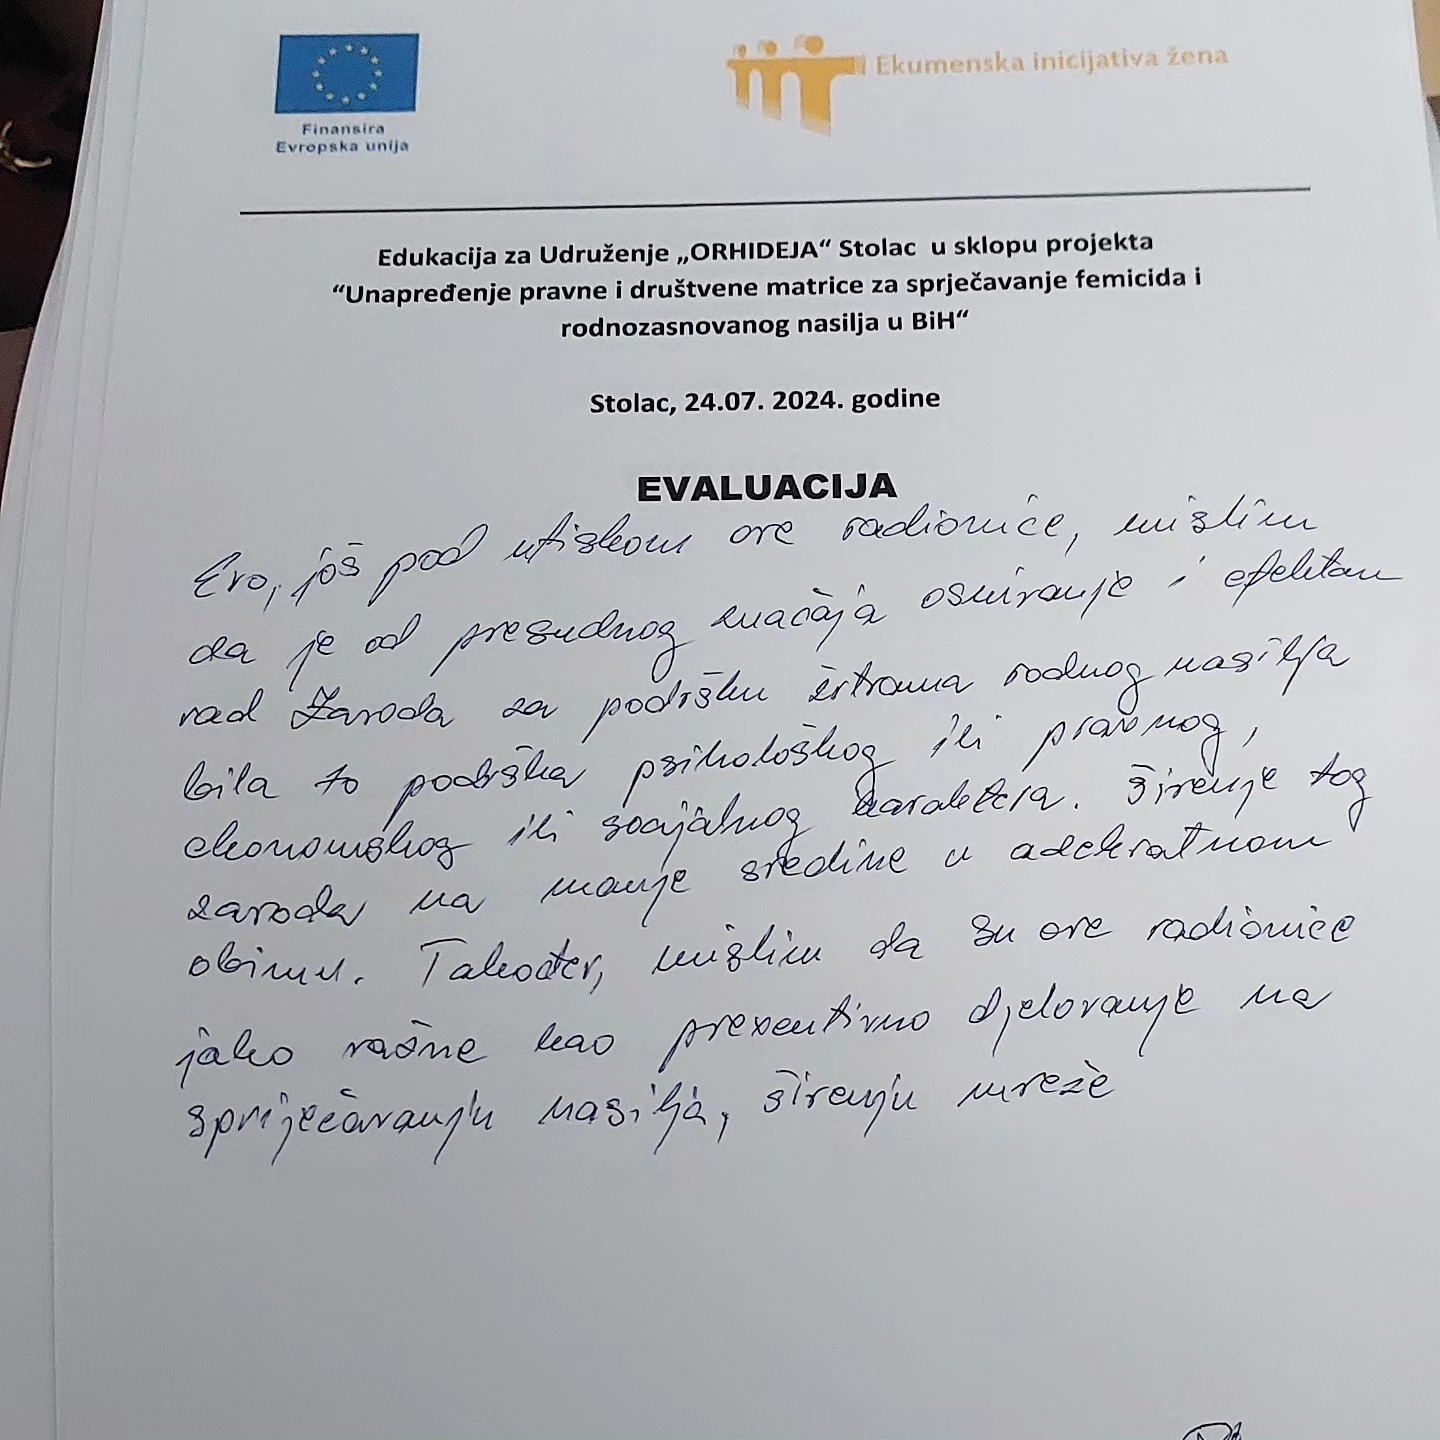 Finansira
Evropska unija
Ekumenska inicijativa žena
Edukacija za Udruženje „ORHIDEJA“ Stolac u sklopu projekta
“Unapređenje pravne i društvene matrice za sprječavanje femicida i
rodnozasnovanog nasilja u BiH“
Stolac, 24.07. 2024. godine
EVALUACIJA
Evo, još pod utiskom ove radionice, mislim
da je od presudnog značaja osnivanje i efektan
rad Zavoda za podršku žrtvama rodnog nasilja
bila to podrška psihološkog ili pravnog,
ekonomskog ili socijalnog karaktera. Širenje tog
zavoda na manje sredine u adekvatnom
obimu. Također, mislim da su ove radionice
jako važne kao preventivno djelovanje na
spriječavanju nasilja, širenju mreže